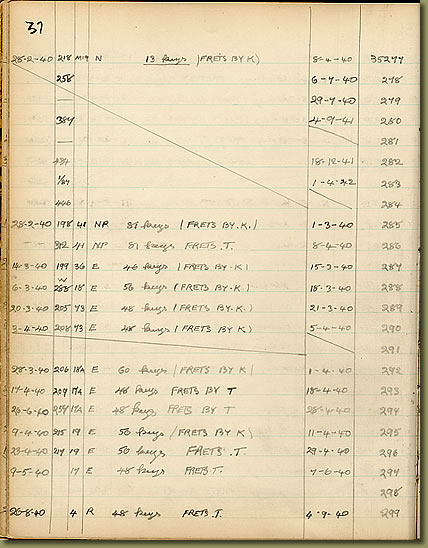 37
28-2-40 218 M19 N 13 keys (FRETS BY K) 8-4-40 35277
258 6-7-40 278
— 29-7-40 279
387 4-9-41 280
— 281
434 18-12-41 282
1-4-42 283
446 284
28-2-40 198 41 NP 81 keys (FRETS BY K.) 1-3-40 285
— 41 NP 81 keys FRETS. T. 8-4-40 286
14-3-40 199 36 E 46 keys (FRETS BY K) 15-3-40 287
6-3-40 18 E 56 keys (FRETS BY K) 18-3-40 288
20-3-40 205 73 E 48 keys (FRETS BY K.) 21-3-40 289
3-4-40 208 73 E 48 keys (FRETS BY K) 5-4-40 290
291
28-3-40 206 18A E 60 keys (FRETS BY K) 1-4-40 292
17-4-40 209 17A E 48 keys FRETS BY T 18-4-40 293
17A E 48 keys FRETS BY T 294
9-4-40 215 19 E 56 keys (FRETS BY K) 11-4-40 295
23-4-40 217 19 E 56 keys FRETS. T 29-4-40 296
9-5-40 17 E 48 keys FRETS T. 7-6-40 297
298
26-8-40 4 R 48 keys FRETS. T. 4-9-40 299